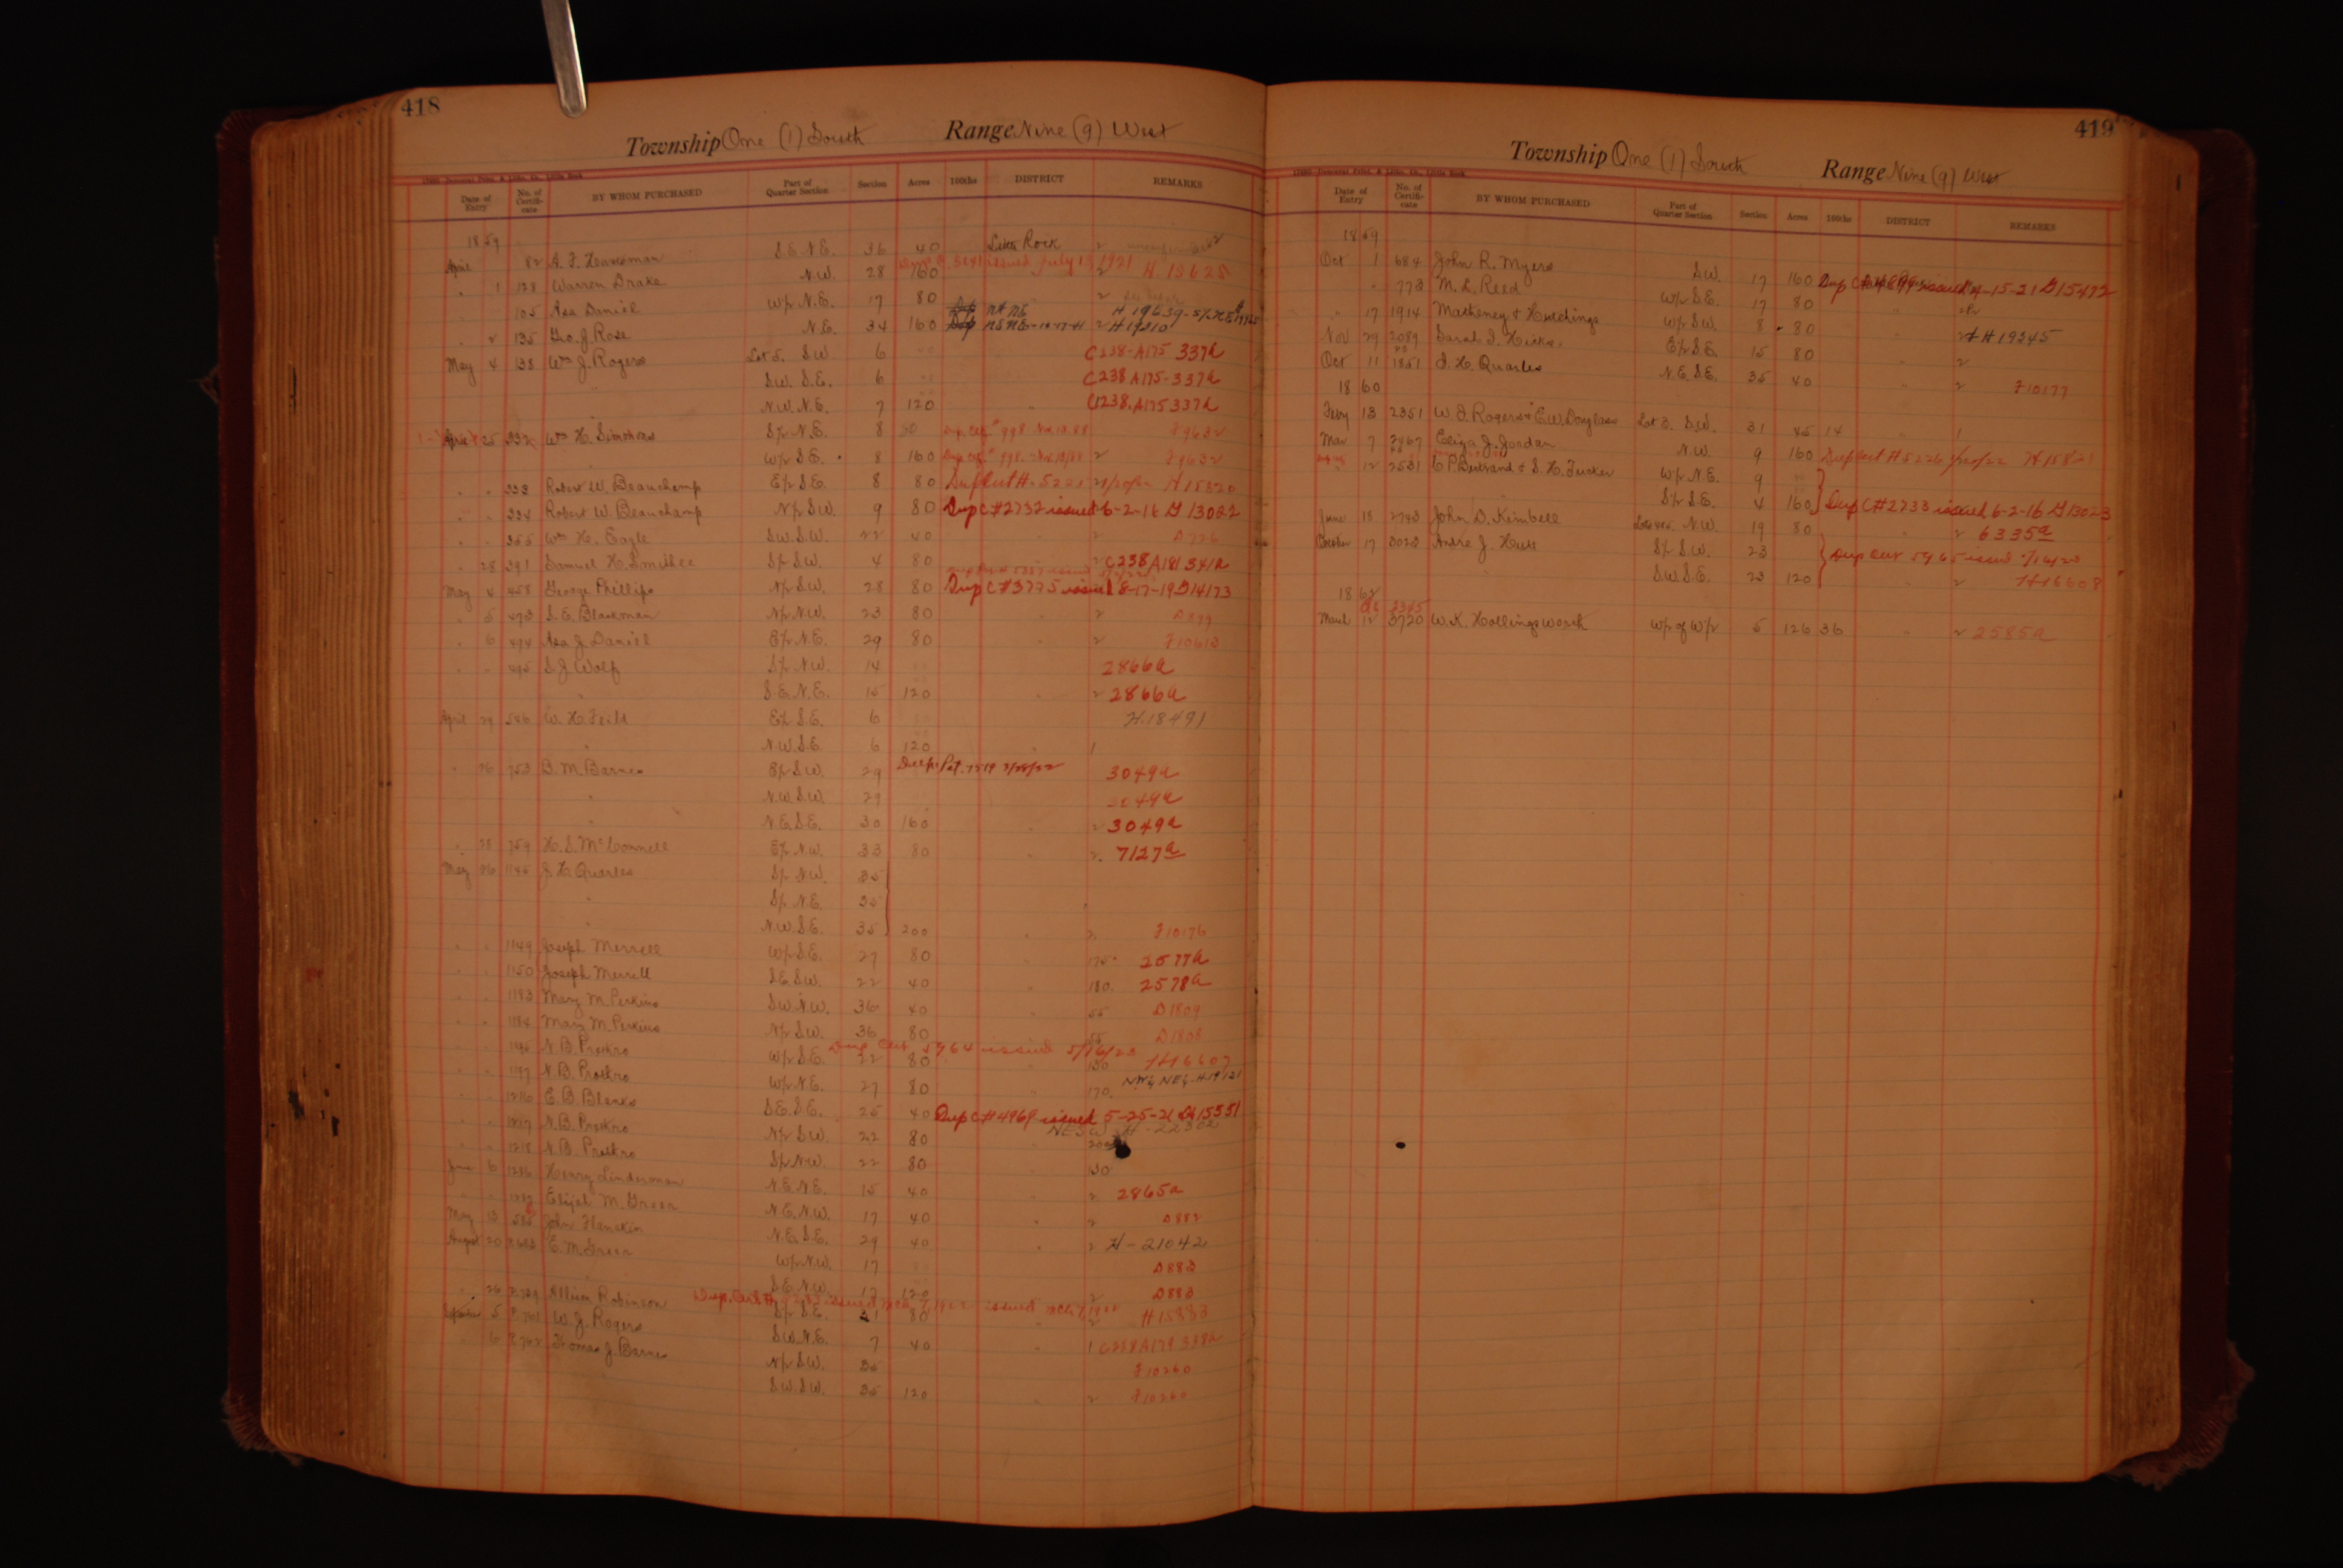 418
Township One (1) South Range Nine (9) West
Date of Entry No. of Certifi-cate BY WHOM PURCHASED Part of Quarter Section Section Acres 100ths DISTRICT REMARKS
1859
April 82 S.E. N.E. 36 40 Little Rock 2
issued July 13 1921
" 1 128 Warren Drake N.W. 28 160 2 H. 15625
105 Asa Daniel W/2 N.E. 17 80 " 2
H 19639
" 2 135 Geo. J. Rose N.E. 34 160 2 H 19210
May 4 138 Wm J. Rogers Lot 5. S.W. 6 C238-A175 337a
" S.W. S.E. 6 C238 A175-337a
N.W. N.E. 7 120 " C238. A175 337a
April 25 332 Wm H. Simmons S/2 N.E. 8 80 Dup. Cert. # 998 Nov. 13. 88 F9632
" W/2 S.E. 8 160 Dup. Cert. # 998. 2 F9632
" " 333 Robert W. Beauchamp E/2 S.E. 8 80 Dup Cert H-5221 H 15820
" " 334 Robert W. Beauchamp N/2 S.W. 9 80 Dup C#2732 issued 6-2-16 G 13022
" " 355 Wm H. Eagle S.W. S.W. 22 40 " 2 D 726
" 28 391 Samuel H. Smithee S/2 S.W. 4 80 2 C238 A181 341a
May 4 458 George Phillips N/2 S.W. 28 80 Dup C#3775 issued 8-17-19 G14173
" 5 473 S. E. Blackman N/2 N.W. 23 80 " 2 D 879
" 6 494 Asa J. Daniel E/2 N.E. 29 80 " 2 F10613
" " 495 S. J. Wolf S/2 N.W. 14 2866a
" S.E. N.E. 15 120 " 2 2866a
April 29 546 W. H. Feild E/2 S.E. 6 H. 18491
" N.W. S.E. 6 120 " 1
" 26 753 B. M. Barnes E/2 S.W. 29 3049a
" N.W. S.W. 29 3049a
" N.E. S.E. 30 160 " 2 3049a
" 28 759 H. S. McConnell E/2 N.W. 33 80 " 2. 7127a
May 26 1145 J. H. Quarles S/2 N.W. 35
" S/2 N.E. 35
" N.W. S.E. 35 200 " 2 F10176
" " 1149 Joseph Merrell W/2 S.E. 27 80 " 175 2577a
" " 1150 Joseph Merrell S.E. S.W. 22 40 " 180. 2578a
" " 1183 Mary M. Perkins S.W. N.W. 36 40 " 55 D1809
" " 1184 Mary M. Perkins N/2 S.W. 36 80 55 D1808
Dup Cert 5964 issued 5/16/23
" " N. B. Prothro W/2 S.E. 22 80 " 150 H16607
" " N. B. Prothro W/2 N.E. 27 80 " 170.
" " 1216 E. B. Blanks S.E. S.E. 25 40 Dup C#4969 issued 5-25-21 G15351
" " 1217 N. B. Prothro N/2 S.W. 22 80 200
" " 1218 N. B. Prothro S/2 N.W. 22 80
June 6 1286 Henry Linderman N.E. N.E. 15 40 " 2 2865a
" " Elijah M. Green N.E. N.W. 17 40 " 2 D882
May 13 585 John N.E. S.E. 29 40 " 2 H-21042
August 20 E. M. Green W/2 N.W. 17 D883
" S.E. N.W. 17 120 2 D883
" 26 Allison Robinson S/2 S.E. 80 " 2 H15883
September 5 P.701 W. J. Rogers S.W. N.E. 7 40 " 1 C238 A179 338a
6 P.702 Thomas J. Barnes N/2 S.W. 35 F10260
S.W. S.W. 35 120 " 2 F10260
419
Township One (1) South Range Nine (9) West
Date of Entry No. of Certifi-cate BY WHOM PURCHASED Part of Quarter Section Section Acres 100ths DISTRICT REMARKS
1859
Oct 1 684 John R. Myers S.W. 17 160 G15472
" 773 M. L. Reed W/2 S.E. 17 80
" 17 1914 Matheney & Hutchings W/2 S.W. 8 80 "
Nov 29 2089 Sarah J. Hicks. E/2 S.E. 15 80 " H 19345
Oct 11 1851 J. H. Quarles N.E. S.E. 35 40 " 2 F10177
1860
Feby 13 2351 W. J. Rogers & E. W. Douglass Lot 3. S.W. 31 45 14 " 1
Mar 7 2467 Eliza J. Jordan N.W. 9 160 Dup Cert H 5226 H15821
" 12 2531 C P. Bertrand & S. H. Tucker W/2 N.E. 9
" S/2 S.E. 4 160 Dup C#2733 issued 6-2-16 G13023
June 18 2743 John D. Kimbell N.W. 19 80 " 2 6335a
October 17 3023 Andre J. Huss S/2 S.W. 23 Dup Cert 5965 issued 5/16/23
" S.W. S.E. 23 120 " 2 H16608
1862
March 12 3720 W. K. Hollingsworth W/2 of W/2 5 126 36 " 2 2585a